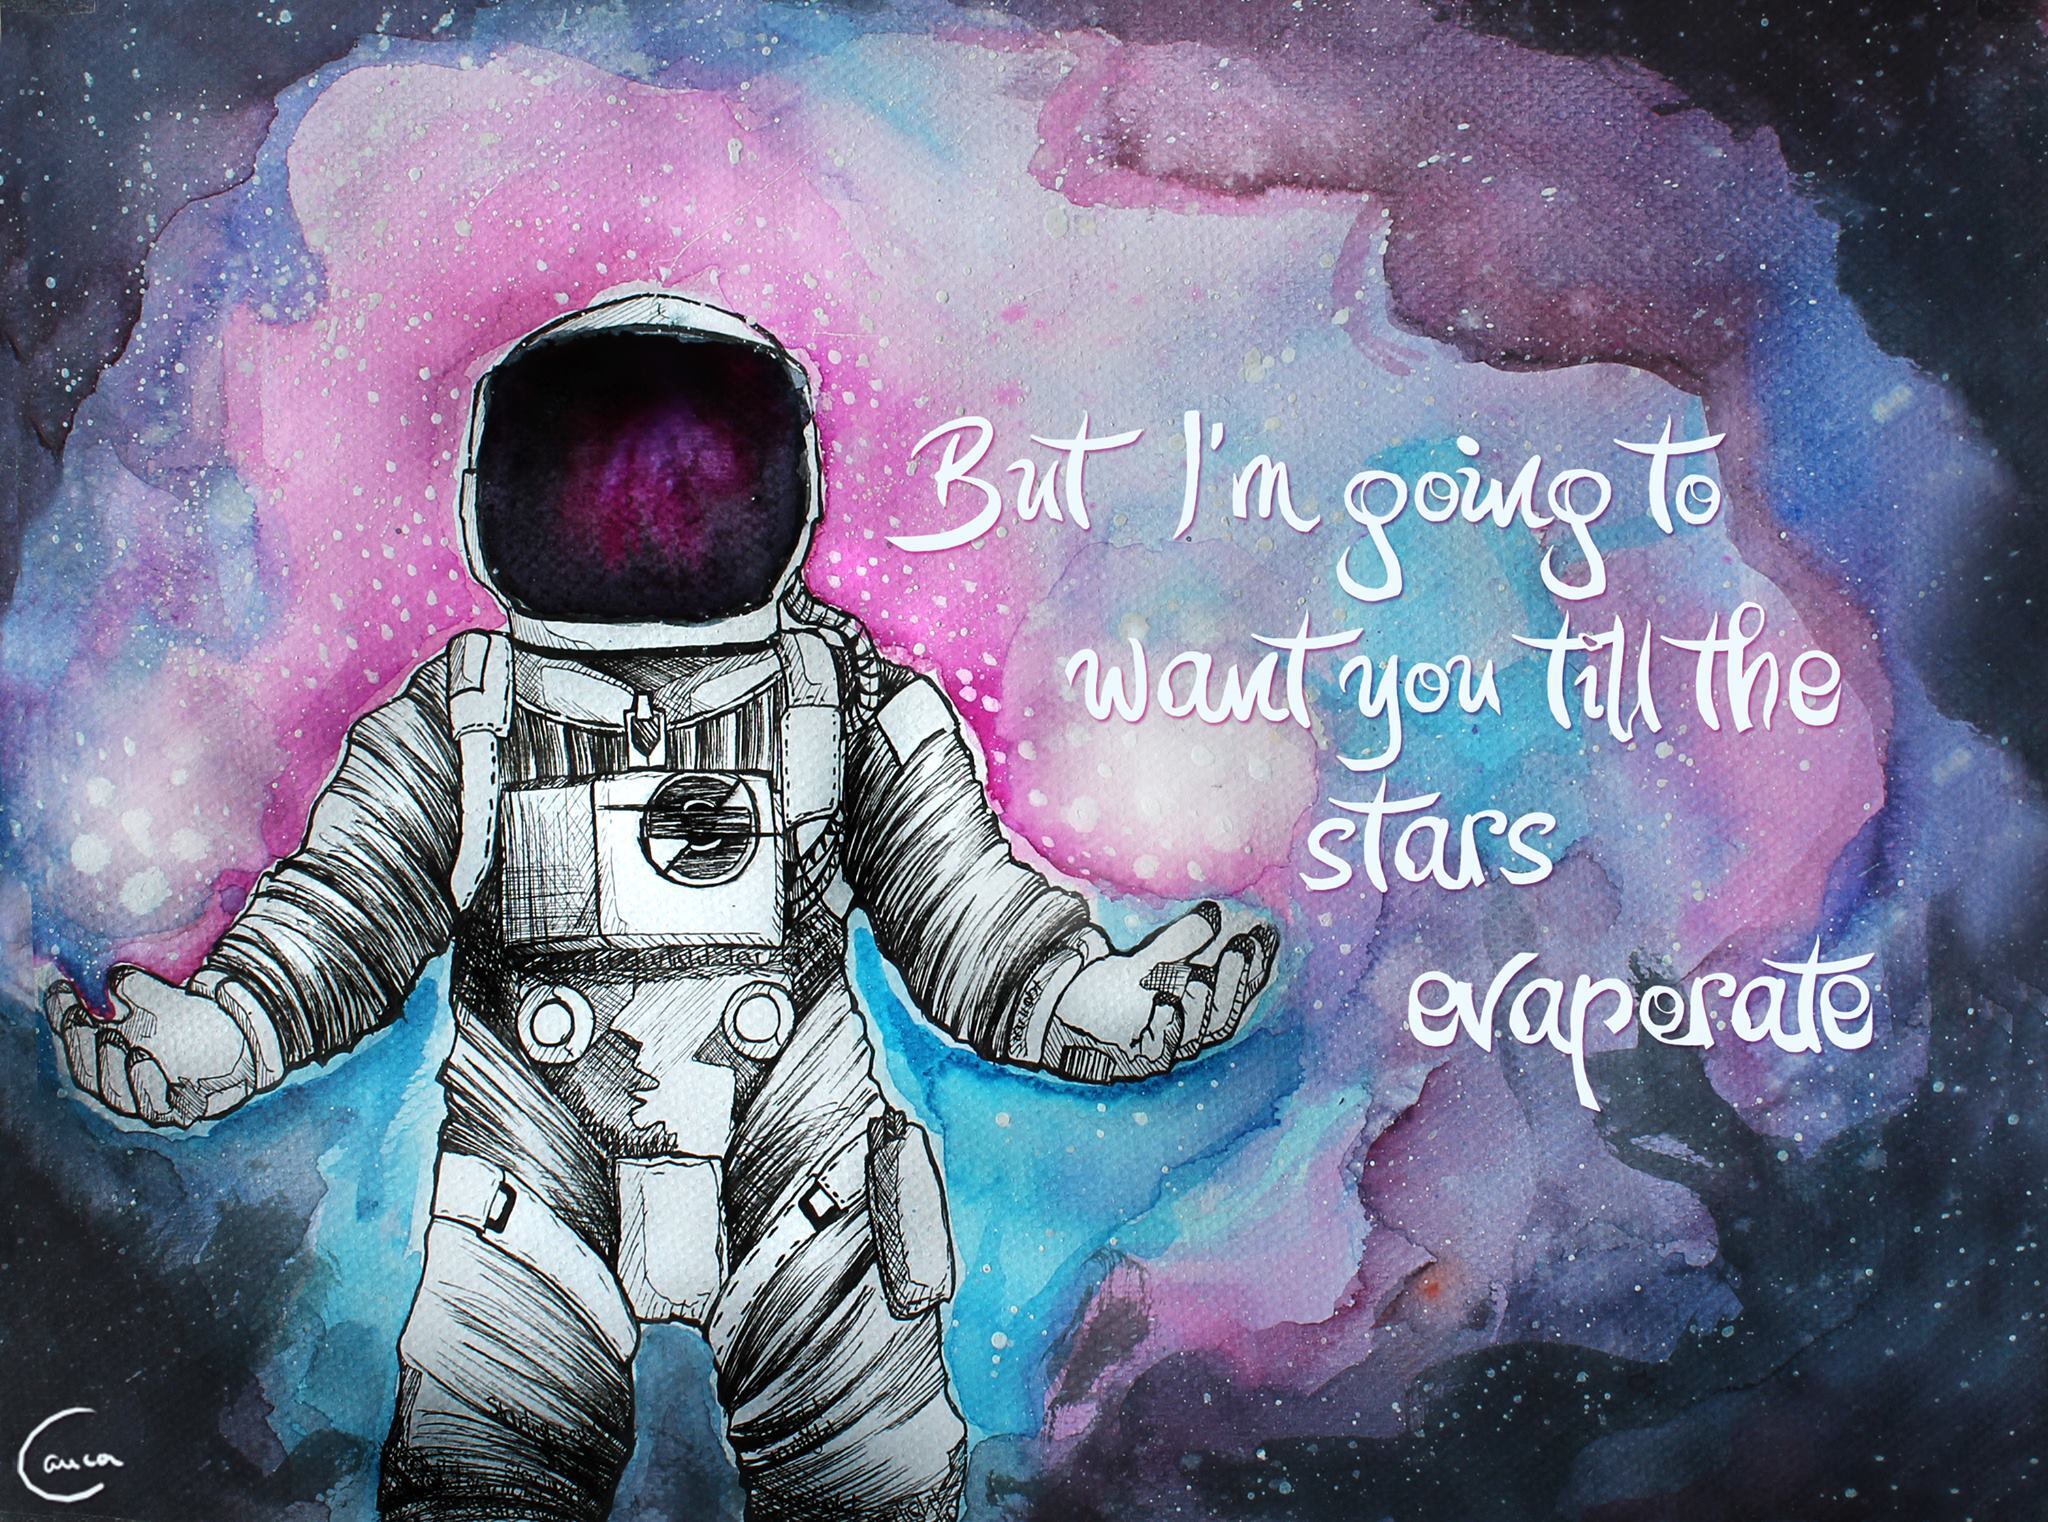 But I'm going to
want you till the
stars
evaporate
Cauca